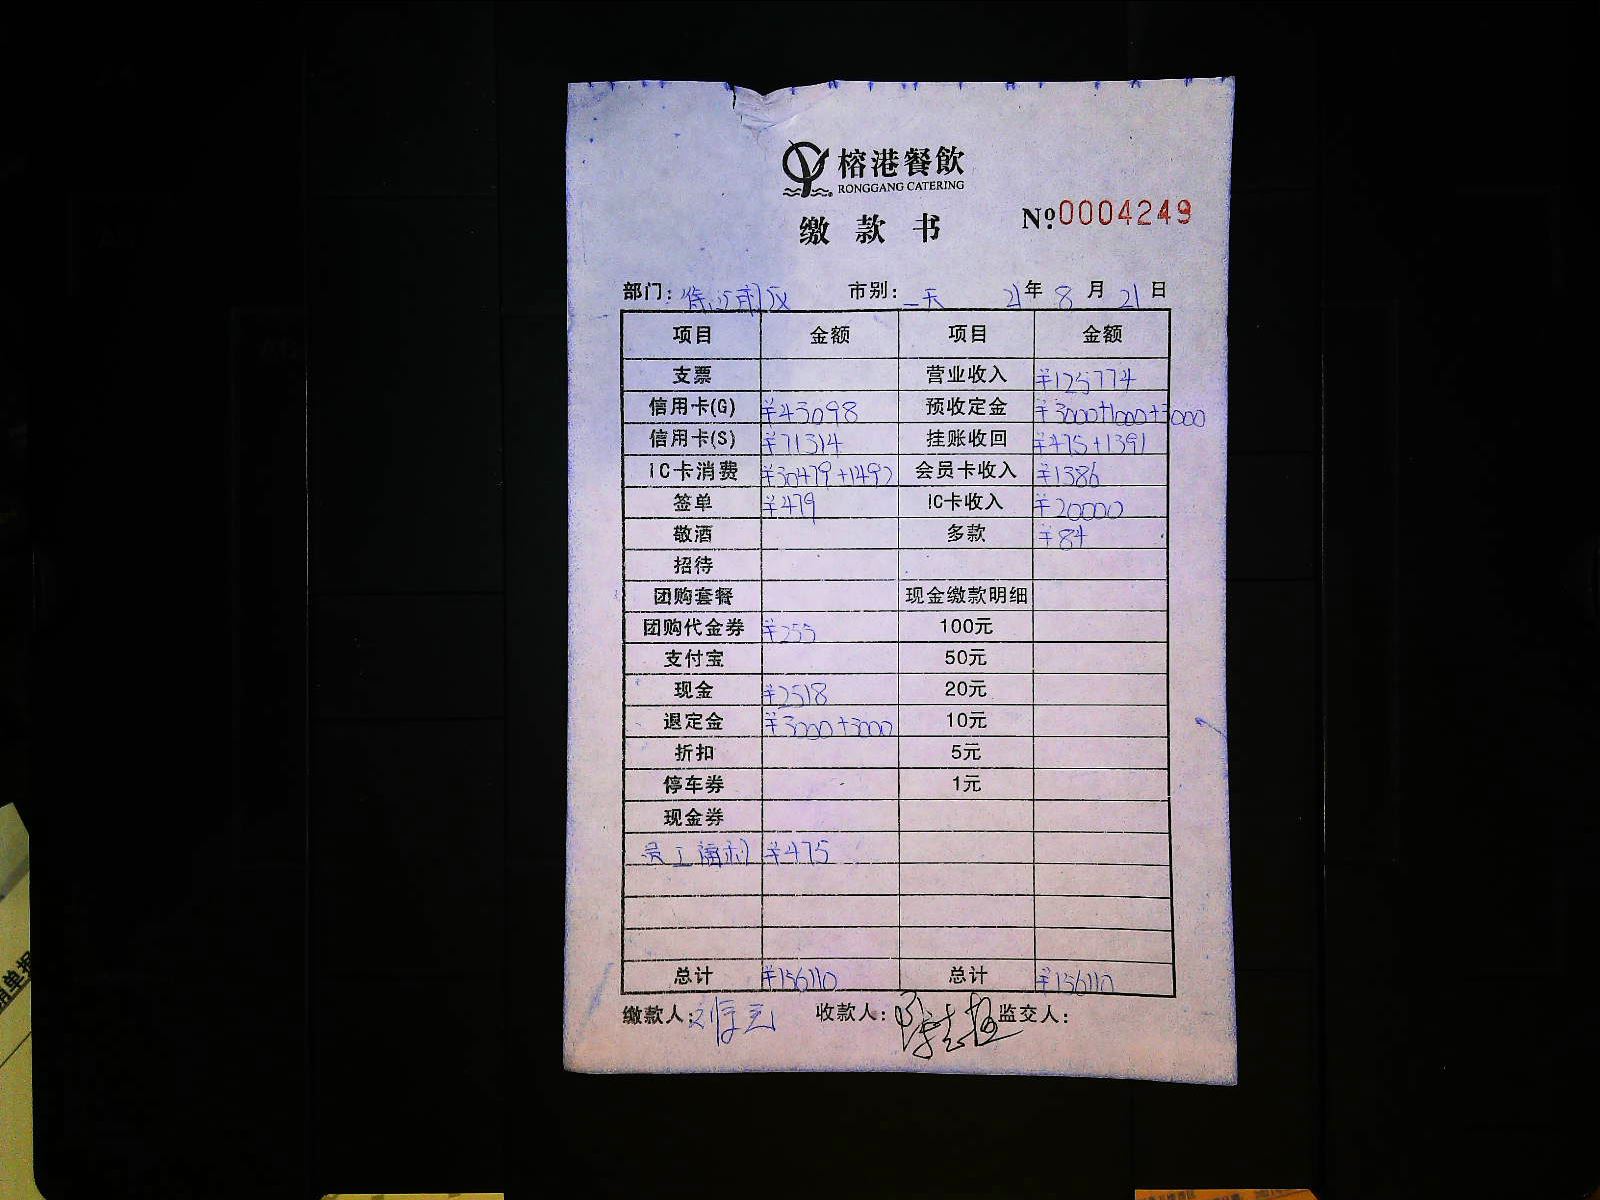 榕港餐飲
RONGGANG CATERING
缴款书
№0004249
部门: 市别: 一天 21年 8月 21日
项目 金额 项目 金额
支票 营业收入 ¥125774
信用卡(G) ¥43098 预收定金 ¥3000+1000+3000
信用卡(S) ¥71314 挂账收回 ¥475+1391
IC卡消费 ¥30479+1492 会员卡收入 ¥1386
签单 ¥479 IC卡收入 ¥20000
敬酒 多款 ¥84
招待
团购套餐 现金缴款明细
团购代金券 ¥255 100元
支付宝 50元
现金 ¥2518 20元
退定金 ¥3000+3000 10元
折扣 5元
停车券 1元
现金券
员工福利 ¥475
总计 ¥156110 总计 ¥156110
缴款人: 收款人: 监交人: